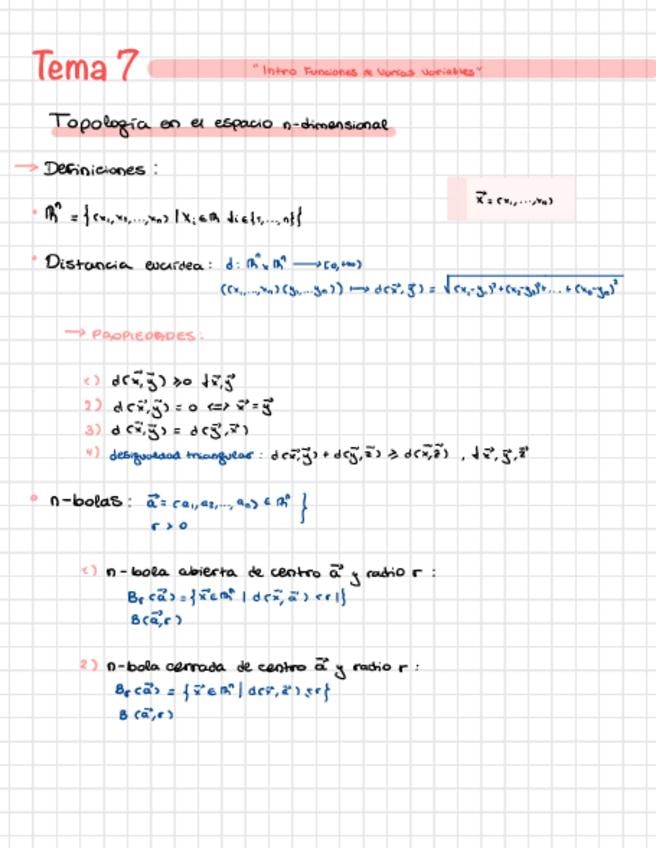 Tema 7
"Intro Funciones de Varias Variables"
Topología en el espacio n-dimensional
→ Definiciones :
x⃗ = (x₁,...,xₙ)
• ℝⁿ = {(x₁,x₂,...,xₙ) | xᵢ ∈ ℝ ∀i∈{1,...,n}}
• Distancia euclídea : d: ℝⁿ x ℝⁿ ⟶ [0,+∞)
((x₁,...,xₙ)(y₁,...yₙ)) ⟼ d(x⃗,y⃗) = √(x₁-y₁)²+(x₂-y₂)²+...+(xₙ-yₙ)²
→ PROPIEDADES:
1) d(x⃗,y⃗) ≥0 ∀x⃗,y⃗
2) d(x⃗,y⃗) = 0 <=> x⃗ = y⃗
3) d(x⃗,y⃗) = d(y⃗,x⃗)
4) desigualdad triangular : d(x⃗,y⃗) + d(y⃗,z⃗) ≥ d(x⃗,z⃗) , ∀x⃗,y⃗,z⃗
• n-bolas : a⃗ = (a₁,a₂,...,aₙ) ∈ ℝⁿ }
r > 0
1) n-bola abierta de centro a⃗ y radio r :
Bᵣ(a⃗) = {x⃗∈ℝⁿ | d(x⃗,a⃗) <r}
B(a⃗,r)
2) n-bola cerrada de centro a⃗ y radio r :
Bᵣ(a⃗) = {x⃗∈ℝⁿ | d(x⃗,a⃗) ≤r}
B (a⃗,r)